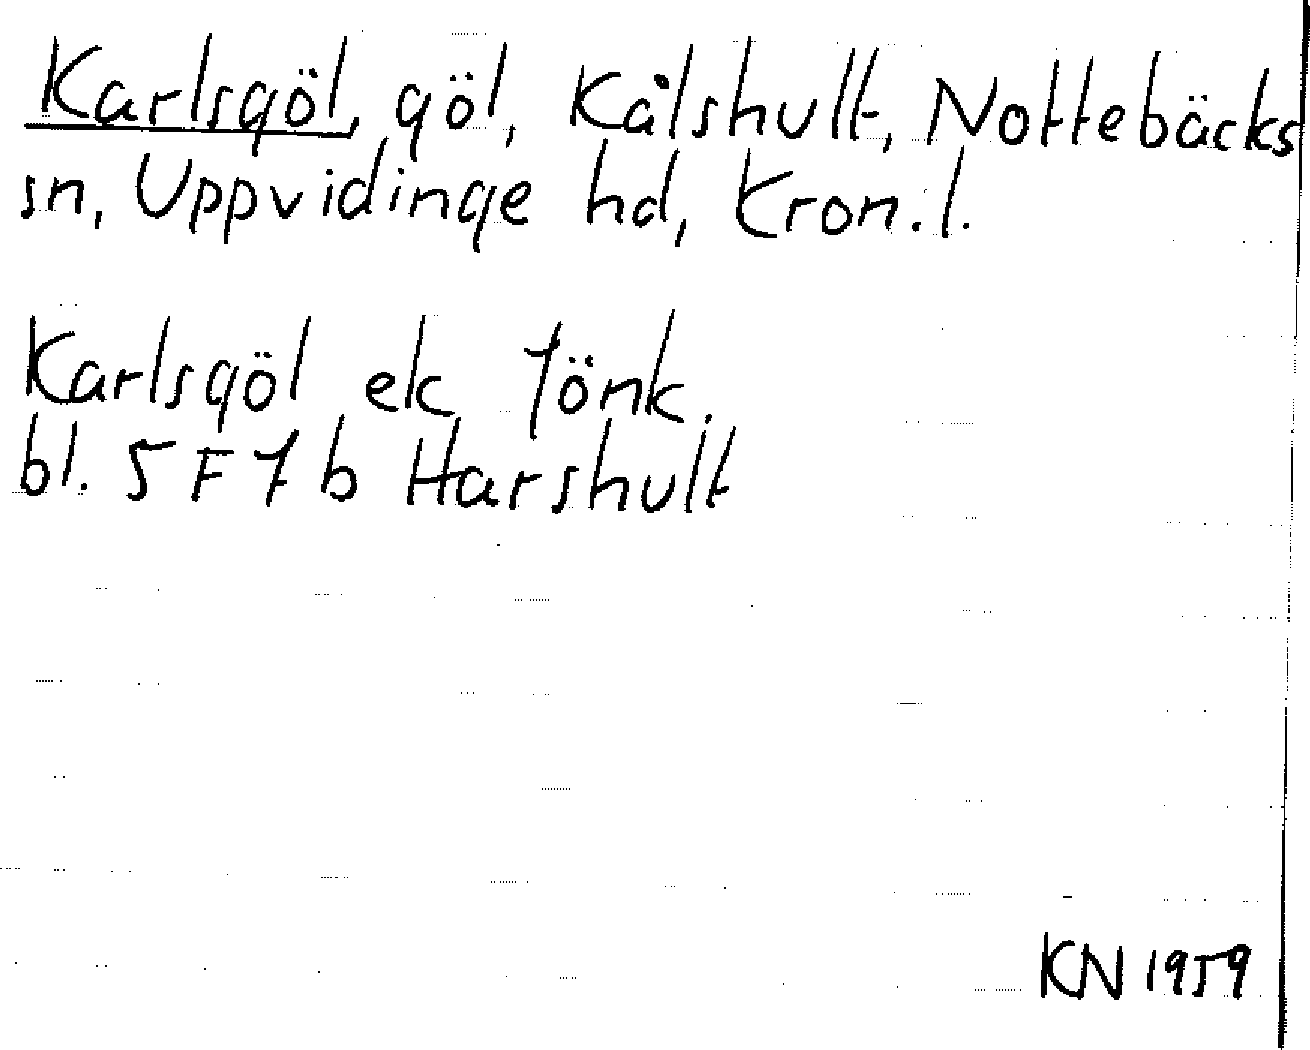 Karlsgöl, göl, Kålshult, Nottebäcks
sn, Uppvidinge hd, Kron.l.
Karlsgöl ek Jönk.
bl. 5 F 7 b Harshult
KN 1959